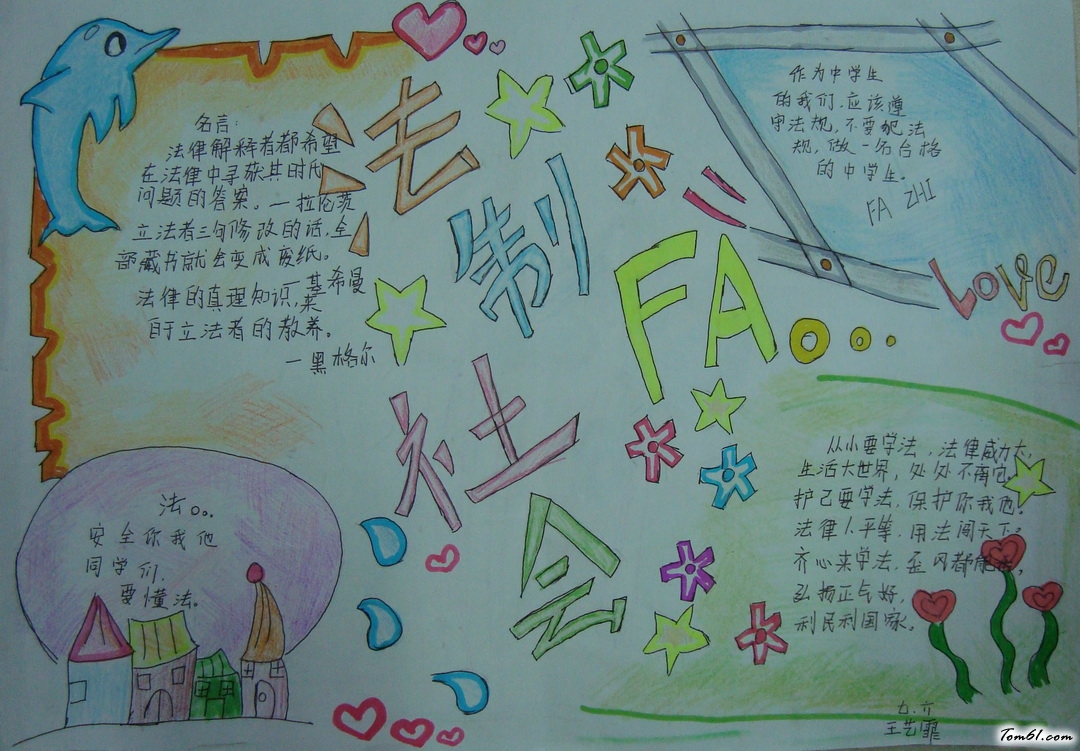 名言：
法律解释者都希望
在法律中寻获其时代
问题的答案。—拉伦茨
立法者三句修改的话，全
部藏书就会变成废纸。
—基希曼
法律的真理知识，来
自于立法者的教养。
—黑格尔
法制
社会
FA
作为中学生
的我们，应该遵
守法规，不要犯法
规，做一名合格
的中学生。
FA ZHI
LOVE
法。。。
安全你我他
同学们，
要懂法。
从小要学法，法律威力大，
生活大世界，处处不离它。
护己要学法，保护你我他。
法律人平等，用法闯天下。
齐心来学法，歪风都能
弘扬正气好，
利民利国家。
九.六
王艺霏
Tom61.com